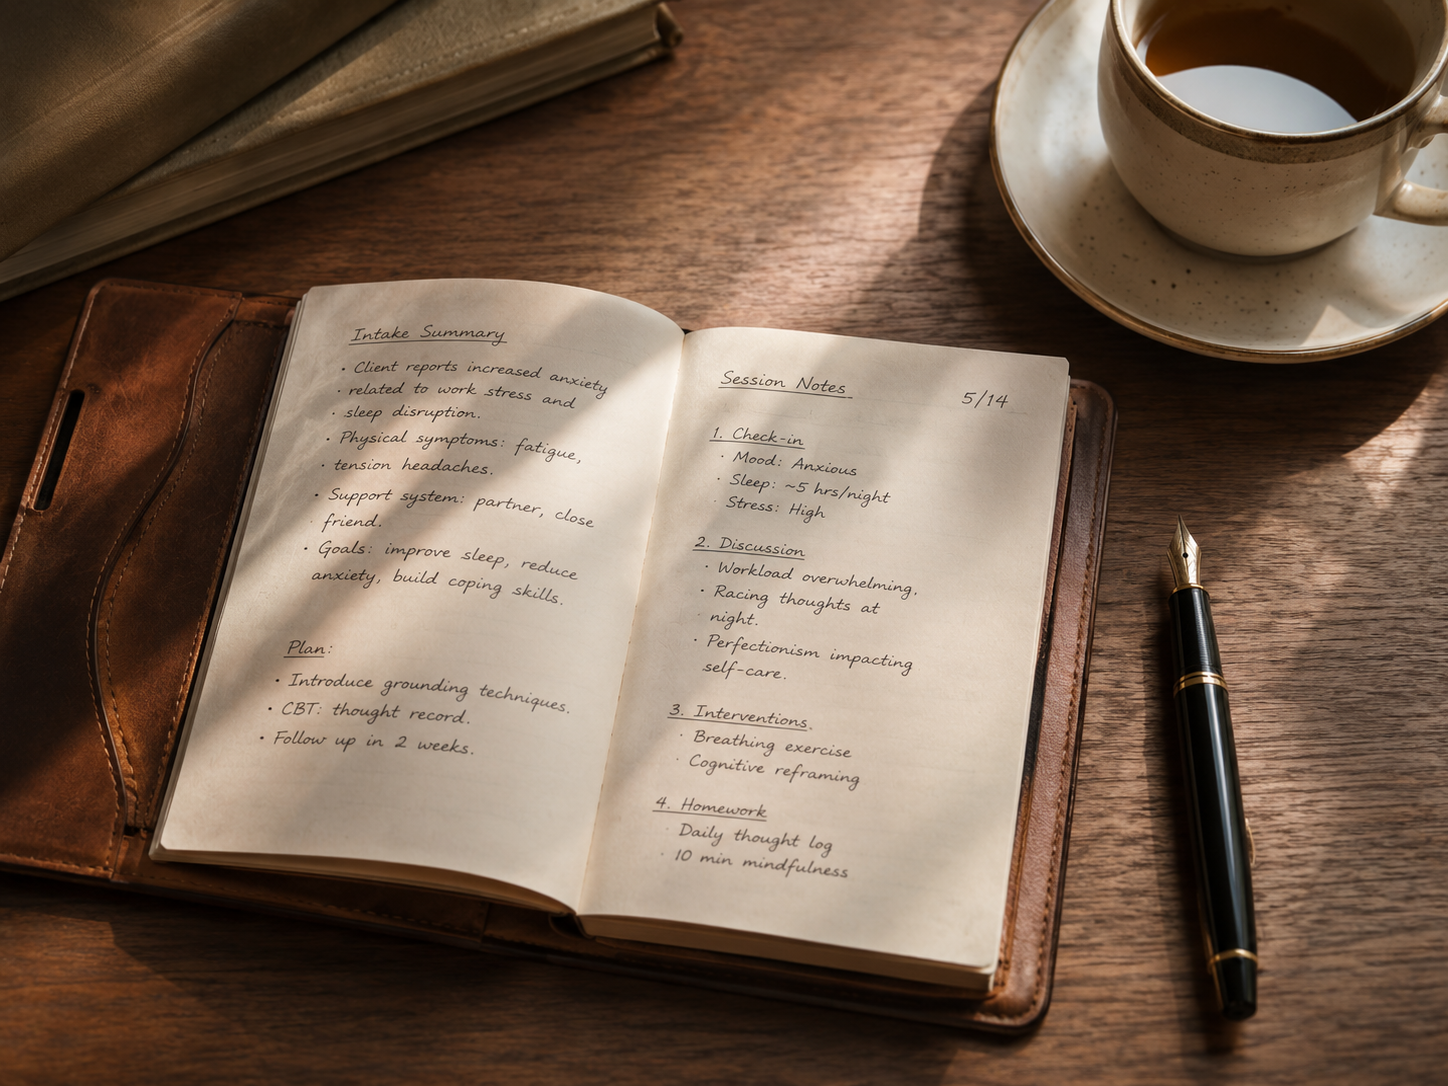 Intake Summary
• Client reports increased anxiety
• related to work stress and
• sleep disruption.
• Physical symptoms: fatigue,
• tension headaches.
• Support system: partner, close
• friend.
• Goals: improve sleep, reduce
anxiety, build coping skills.
Plan:
• Introduce grounding techniques.
• CBT: thought record.
• Follow up in 2 weeks.
Session Notes
5/14
1. Check-in
• Mood: Anxious
• Sleep: ~5 hrs/night
• Stress: High
2. Discussion
• Workload overwhelming.
• Racing thoughts at
night.
• Perfectionism impacting
self-care.
3. Interventions.
• Breathing exercise
• Cognitive reframing
4. Homework
• Daily thought log
• 10 min mindfulness